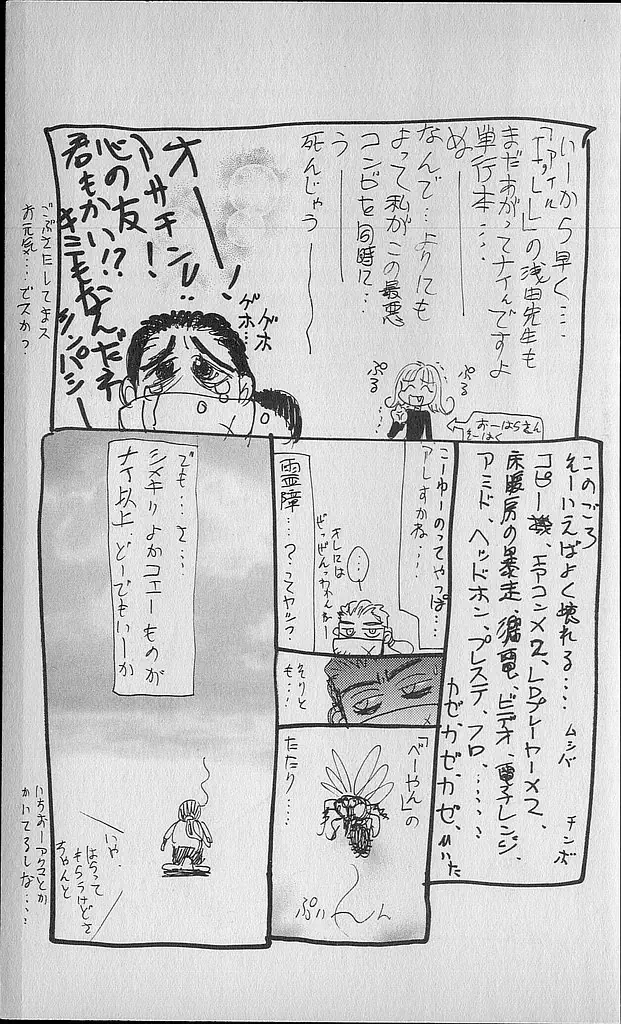 いーから早く…
「ファイル
の浅田先生も
まだあがってナイんですよ
単行本…
ぬ――
なんで…よりにも
よって私がこの最悪
コンビを同時に…
う――
死んじゃう――
ぷる
ぷる
おーはらさん
そーはく
オ――!
アサチンッ!!
心の友!
君もかい!?
キミもなんだネ
シンパシー
ゲホ
ゲホ…
ごぶさたしてます
お元気…ですか?
このごろ
そーいえばよく壊れる…
コピー機、エアコン×2、LDプレーヤー×2、
床暖房の暴走、漏電、ビデオ、電子レンジ、
アミド、ヘッドホン、プレステ、フロ、……
ムシバ
チンボ
カゼ、カゼ、カゼ、ひいた
こーゆーのってやっぱ…
アレすかね…
霊障…?ってヤツ?
オレには
ぜってぇんわかんねー
(…)
そりと
も…!
「べーやん」の
たたり…
ぷい〜んん
でも…さ…
シメキリよかコエーものが
ナイ以上…どーでもいーか
いや、
はらって
もらうけどさ
ちゃんと
いちおーアクマとか
かいてるしな…!